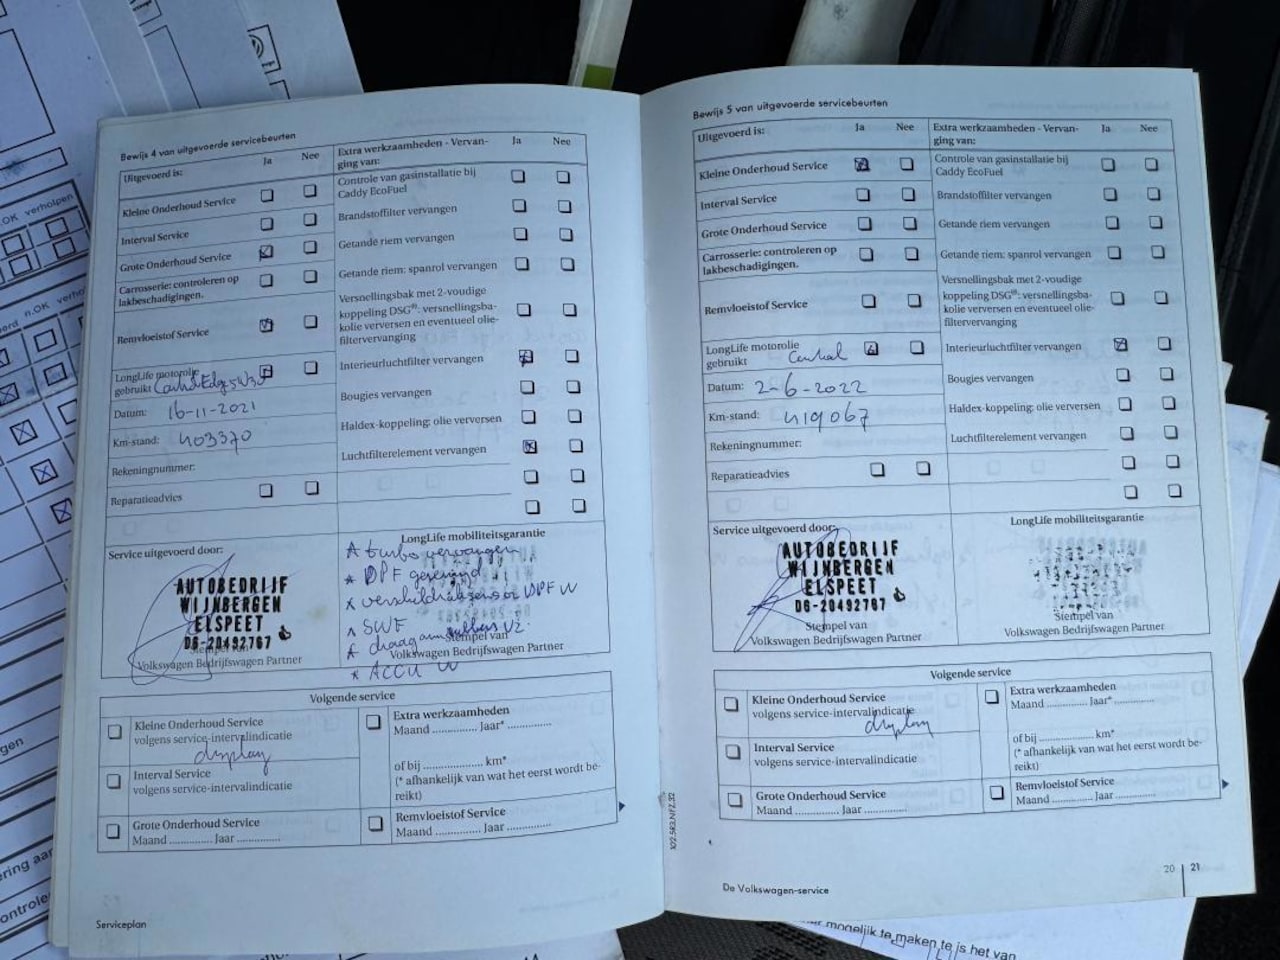 Bewijs 4 van uitgevoerde servicebeurten
Uitgevoerd is:
Ja
Nee
Extra werkzaamheden - Vervan-
ging van:
Ja
Nee
Kleine Onderhoud Service
Interval Service
Grote Onderhoud Service
Carrosserie: controleren op
lakbeschadigingen.
Remvloeistof Service
LongLife motorolie
gebruikt
Datum: 16-11-2021
Km-stand: 403370
Rekeningnummer:
Reparatieadvies
Controle van gasinstallatie bij
Caddy EcoFuel
Brandstoffilter vervangen
Getande riem vervangen
Getande riem: spanrol vervangen
Versnellingsbak met 2-voudige
koppeling DSG®: versnellingsba-
kolie verversen en eventueel olie-
filtervervanging
Interieurluchtfilter vervangen
Bougies vervangen
Haldex-koppeling: olie verversen
Luchtfilterelement vervangen
Service uitgevoerd door:
AUTOBEDRIJF
WIJNBERGEN
ELSPEET
06-20492767
Stempel van
Volkswagen Bedrijfswagen Partner
LongLife mobiliteitsgarantie
* turbo vervangen
* DPF gereinigd
* verschildruksensor DPF W
* SWF
* draagarmrubbers VZ
* ACCU W
Stempel van
Volkswagen Bedrijfswagen Partner
Volgende service
Kleine Onderhoud Service
volgens service-intervalindicatie
display
Interval Service
volgens service-intervalindicatie
Grote Onderhoud Service
Maand ............. Jaar .............
Extra werkzaamheden
Maand .............. Jaar* .............
of bij .................... km*
(* afhankelijk van wat het eerst wordt be-
reikt)
Remvloeistof Service
Maand ............. Jaar .............
Serviceplan
Bewijs 5 van uitgevoerde servicebeurten
Uitgevoerd is:
Ja
Nee
Extra werkzaamheden - Vervan-
ging van:
Ja
Nee
Kleine Onderhoud Service
Interval Service
Grote Onderhoud Service
Carrosserie: controleren op
lakbeschadigingen.
Remvloeistof Service
LongLife motorolie
gebruikt
Datum: 2-6-2022
Km-stand: 419067
Rekeningnummer:
Reparatieadvies
Controle van gasinstallatie bij
Caddy EcoFuel
Brandstoffilter vervangen
Getande riem vervangen
Getande riem: spanrol vervangen
Versnellingsbak met 2-voudige
koppeling DSG®: versnellingsba-
kolie verversen en eventueel olie-
filtervervanging
Interieurluchtfilter vervangen
Bougies vervangen
Haldex-koppeling: olie verversen
Luchtfilterelement vervangen
Service uitgevoerd door:
AUTOBEDRIJF
WIJNBERGEN
ELSPEET
06-20492767
Stempel van
Volkswagen Bedrijfswagen Partner
LongLife mobiliteitsgarantie
Stempel van
Volkswagen Bedrijfswagen Partner
Volgende service
Kleine Onderhoud Service
volgens service-intervalindicatie
display
Interval Service
volgens service-intervalindicatie
Grote Onderhoud Service
Maand ............. Jaar .............
Extra werkzaamheden
Maand .............. Jaar* .............
of bij .................... km*
(* afhankelijk van wat het eerst wordt be-
reikt)
Remvloeistof Service
Maand ............. Jaar .............
De Volkswagen-service
20 | 21
mogelijk te maken te is het van